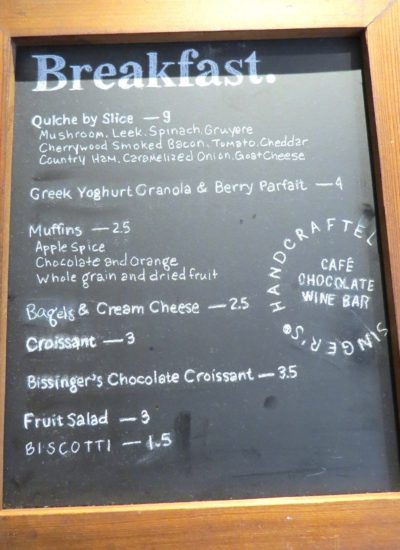 Breakfast.
Quiche by Slice — 9
Mushroom, Leek, Spinach, Gruyere
Cherrywood Smoked Bacon, Tomato, Cheddar
Country Ham, Caramelized Onion, Goat Cheese
Greek Yoghurt Granola & Berry Parfait — 4
Muffins — 2.5
Apple Spice
Chocolate and Orange
Whole grain and dried fruit
Bagels & Cream Cheese — 2.5
Croissant — 3
Bissinger's Chocolate Croissant — 3.5
Fruit Salad — 3
BISCOTTI — 1.5
HANDCRAFTE
CAFÉ
CHOCOLATE
WINE BAR
SINGER'S®